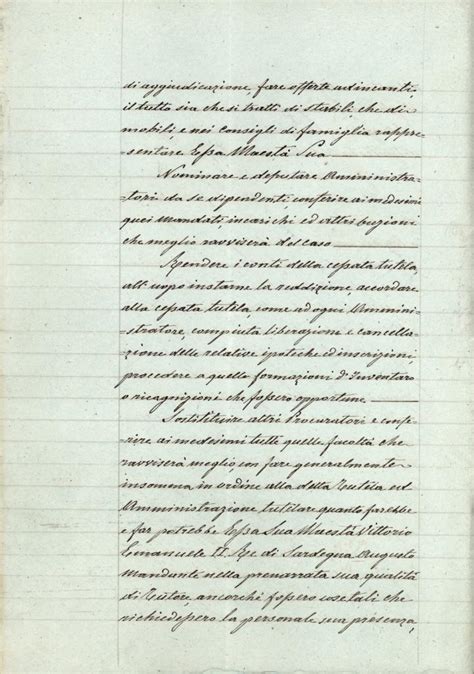 di aggiudicazione, fare offerte ad incanti,
il tutto sia che si tratti di stabili, che di
mobili, e nei consigli di famiglia rappre-
-sentare Essa Maestà Sua
Nominare e deputare Amministra-
-tori da se dipendenti, conferire ai medesimi
quei mandati, incarichi ed attribuzioni
che meglio ravviserà del caso
Rendere i conti della cessata tutela,
all'uopo instarne la reddizione, accordare
alla cessata tutela come ad ogni Ammini-
-stratore, compiuta liberazione e cancella-
-zione delle relative ipoteche ed inscrizioni
procedere a quelle formazioni d'Inventaro
o ricognizioni che fossero opportune.
Sostituire altri Procuratori e confe-
-rire ai medesimi tutte quelle facoltà che
ravviserà meglio, con fare generalmente
insomma in ordine alla detta Tutela ed
Amministrazione tutelare quanto farebbe
e far potrebbe Essa Sua Maestà Vittorio
Emanuele II. Re di Sardegna Augusto
Mandante nella prenarrata sua qualità
di Tutore, ancorchè fossero cose tali che
richiedessero la personale sua presenza,